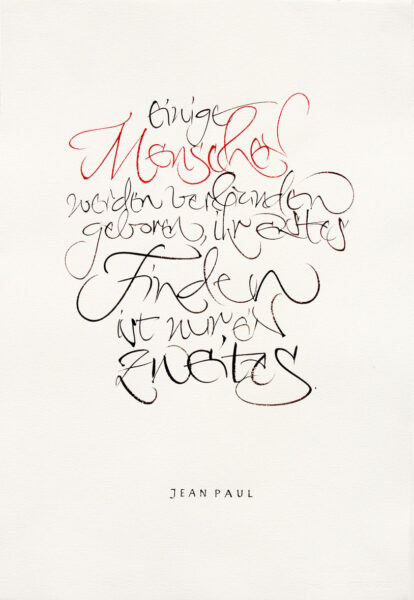 einige
Menschen
werden verbunden
geboren, ihr erstes
Finden
ist nur ein
zweites
JEAN PAUL